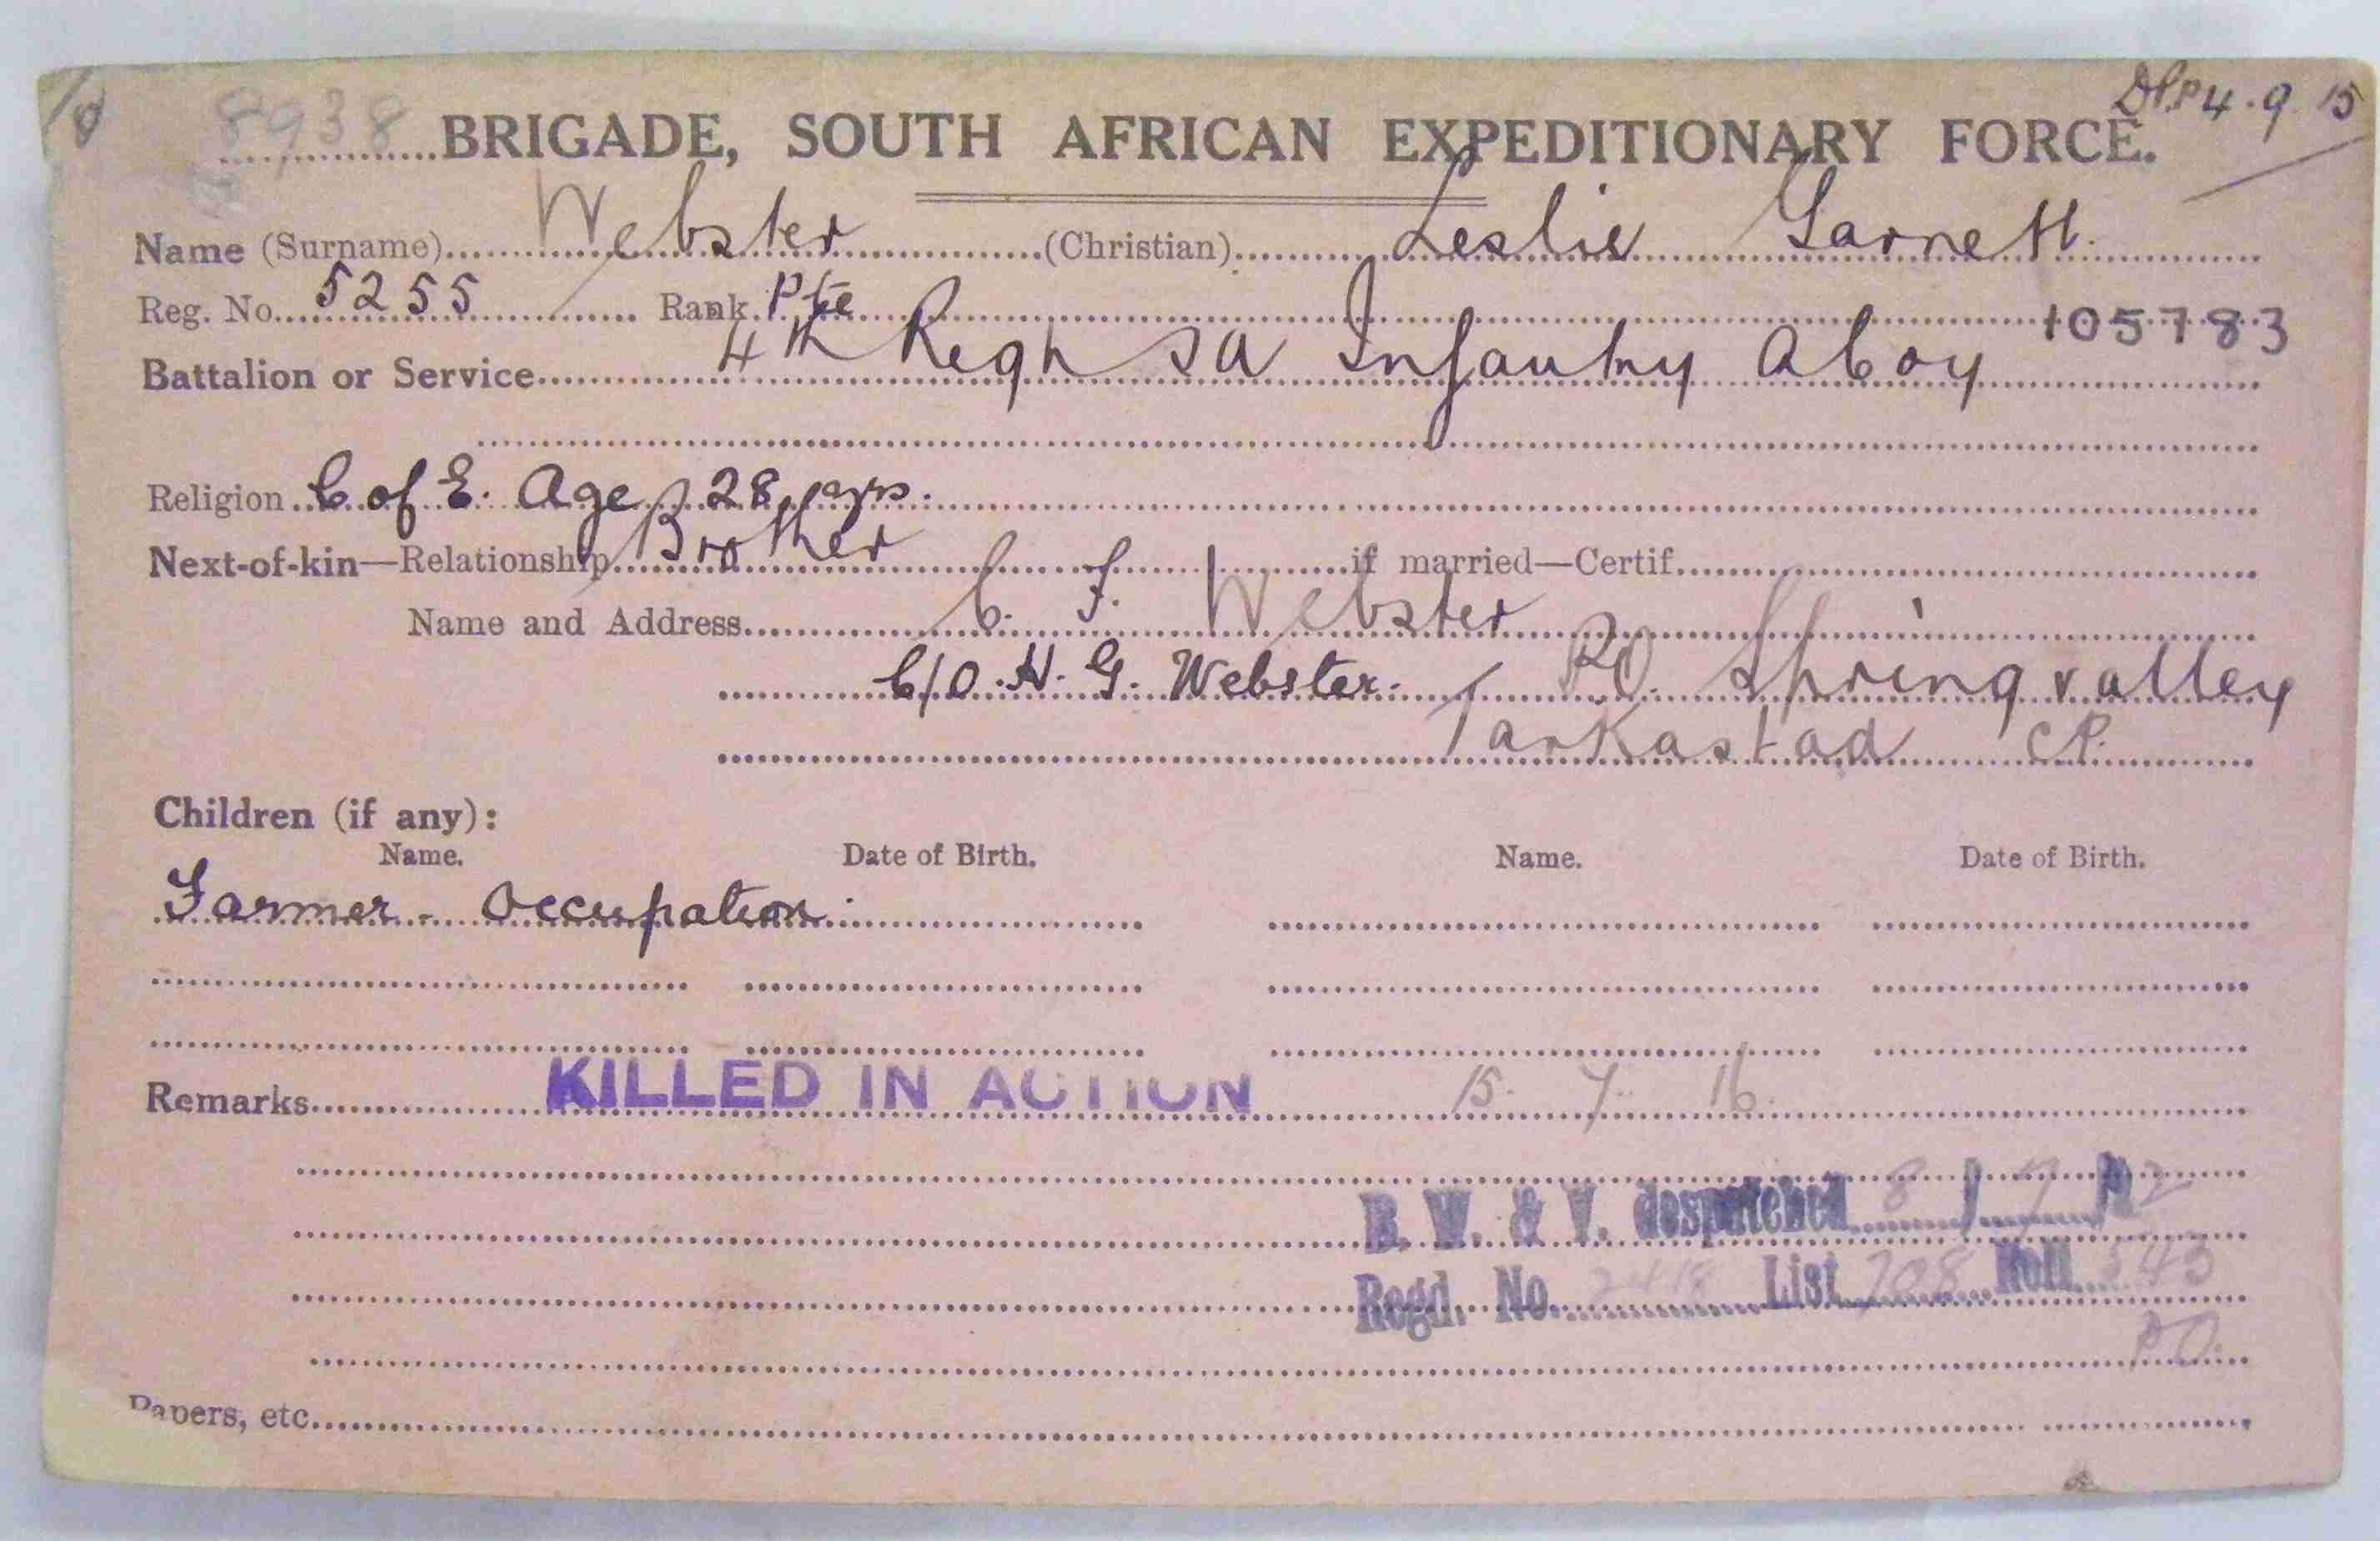 8938 BRIGADE, SOUTH AFRICAN EXPEDITIONARY FORCE. 4.9.15
Name (Surname) Webster (Christian) Leslie Garnett.
Reg. No. 5255 Rank Pte 105783
Battalion or Service 4th Regt SA Infantry A Coy
Religion C of E. Age 28 yrs.
Next-of-kin—Relationship Brother if married—Certif.
Name and Address C. F. Webster
C/O. H. G. Webster. PO. Spring valley
Tarkastad CP.
Children (if any):
Name. Date of Birth. Name. Date of Birth.
Farmer - Occupation.
Remarks KILLED IN ACTION 15. 7. 16.
B. W. & V. despatched 8 / 9 / 22
Regd. No. 2418 List 708 Roll 543
PO.
Papers, etc.